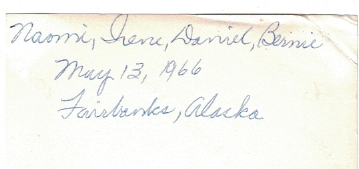 Naomi, Irene, Daniel, Bernie
May 13, 1966
Fairbanks, Alaska